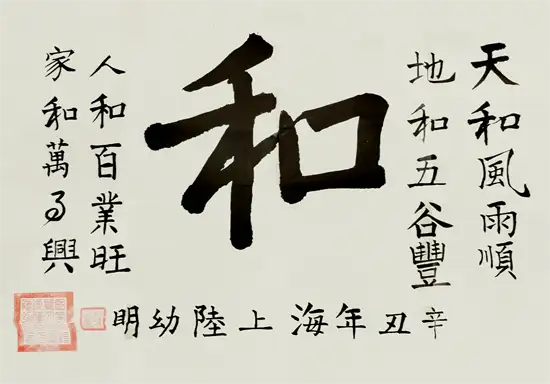 天和風雨順
地和五谷豐
和
人和百業旺
家和萬事興
辛丑年海上陸幼明